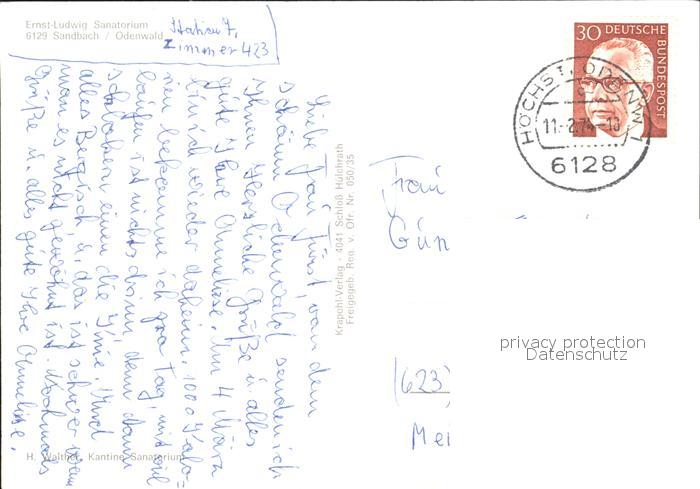 Ernst-Ludwig Sanatorium
6129 Sandbach / Odenwald
Station 7,
Zimmer 423
Liebe Frau Fürst, von dem
schönen Odenwald sende ich
Ihnen herzliche Grüße u. alles
gute Ihre Anneliese. Am 4 März
bin ich wieder daheim. 1000 Kalo=
rien bekomme ich pro Tag, mit viel
laufen ist nichts drin, denn dann
schlottern einem die Knie. Und
alles Bergisch u. das ist schwer wenn
man es nicht gewöhnt ist. Nochmals
Grüße u. alles gute Ihre Anneliese.
H. Walther, Kantine Sanatorium
Krapohl-Verlag - 4041 Schloß Hülchrath
Freigegeb. Reg. v. Ofr. Nr. 050/35
30 DEUTSCHE
BUNDESPOST
HÖCHST, ODENW 1
11.-2.74-18
6128
Frau
Gün
(623)
Mei
privacy protection
Datenschutz